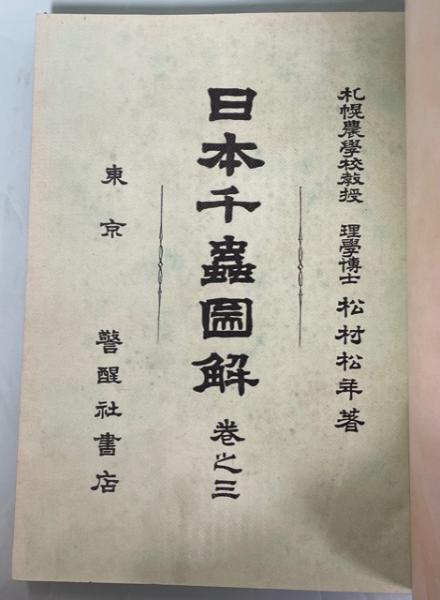 札幌農學校教授 理學博士 松村松年著
日本千蟲圖解 巻之三
東京 警醒社書店